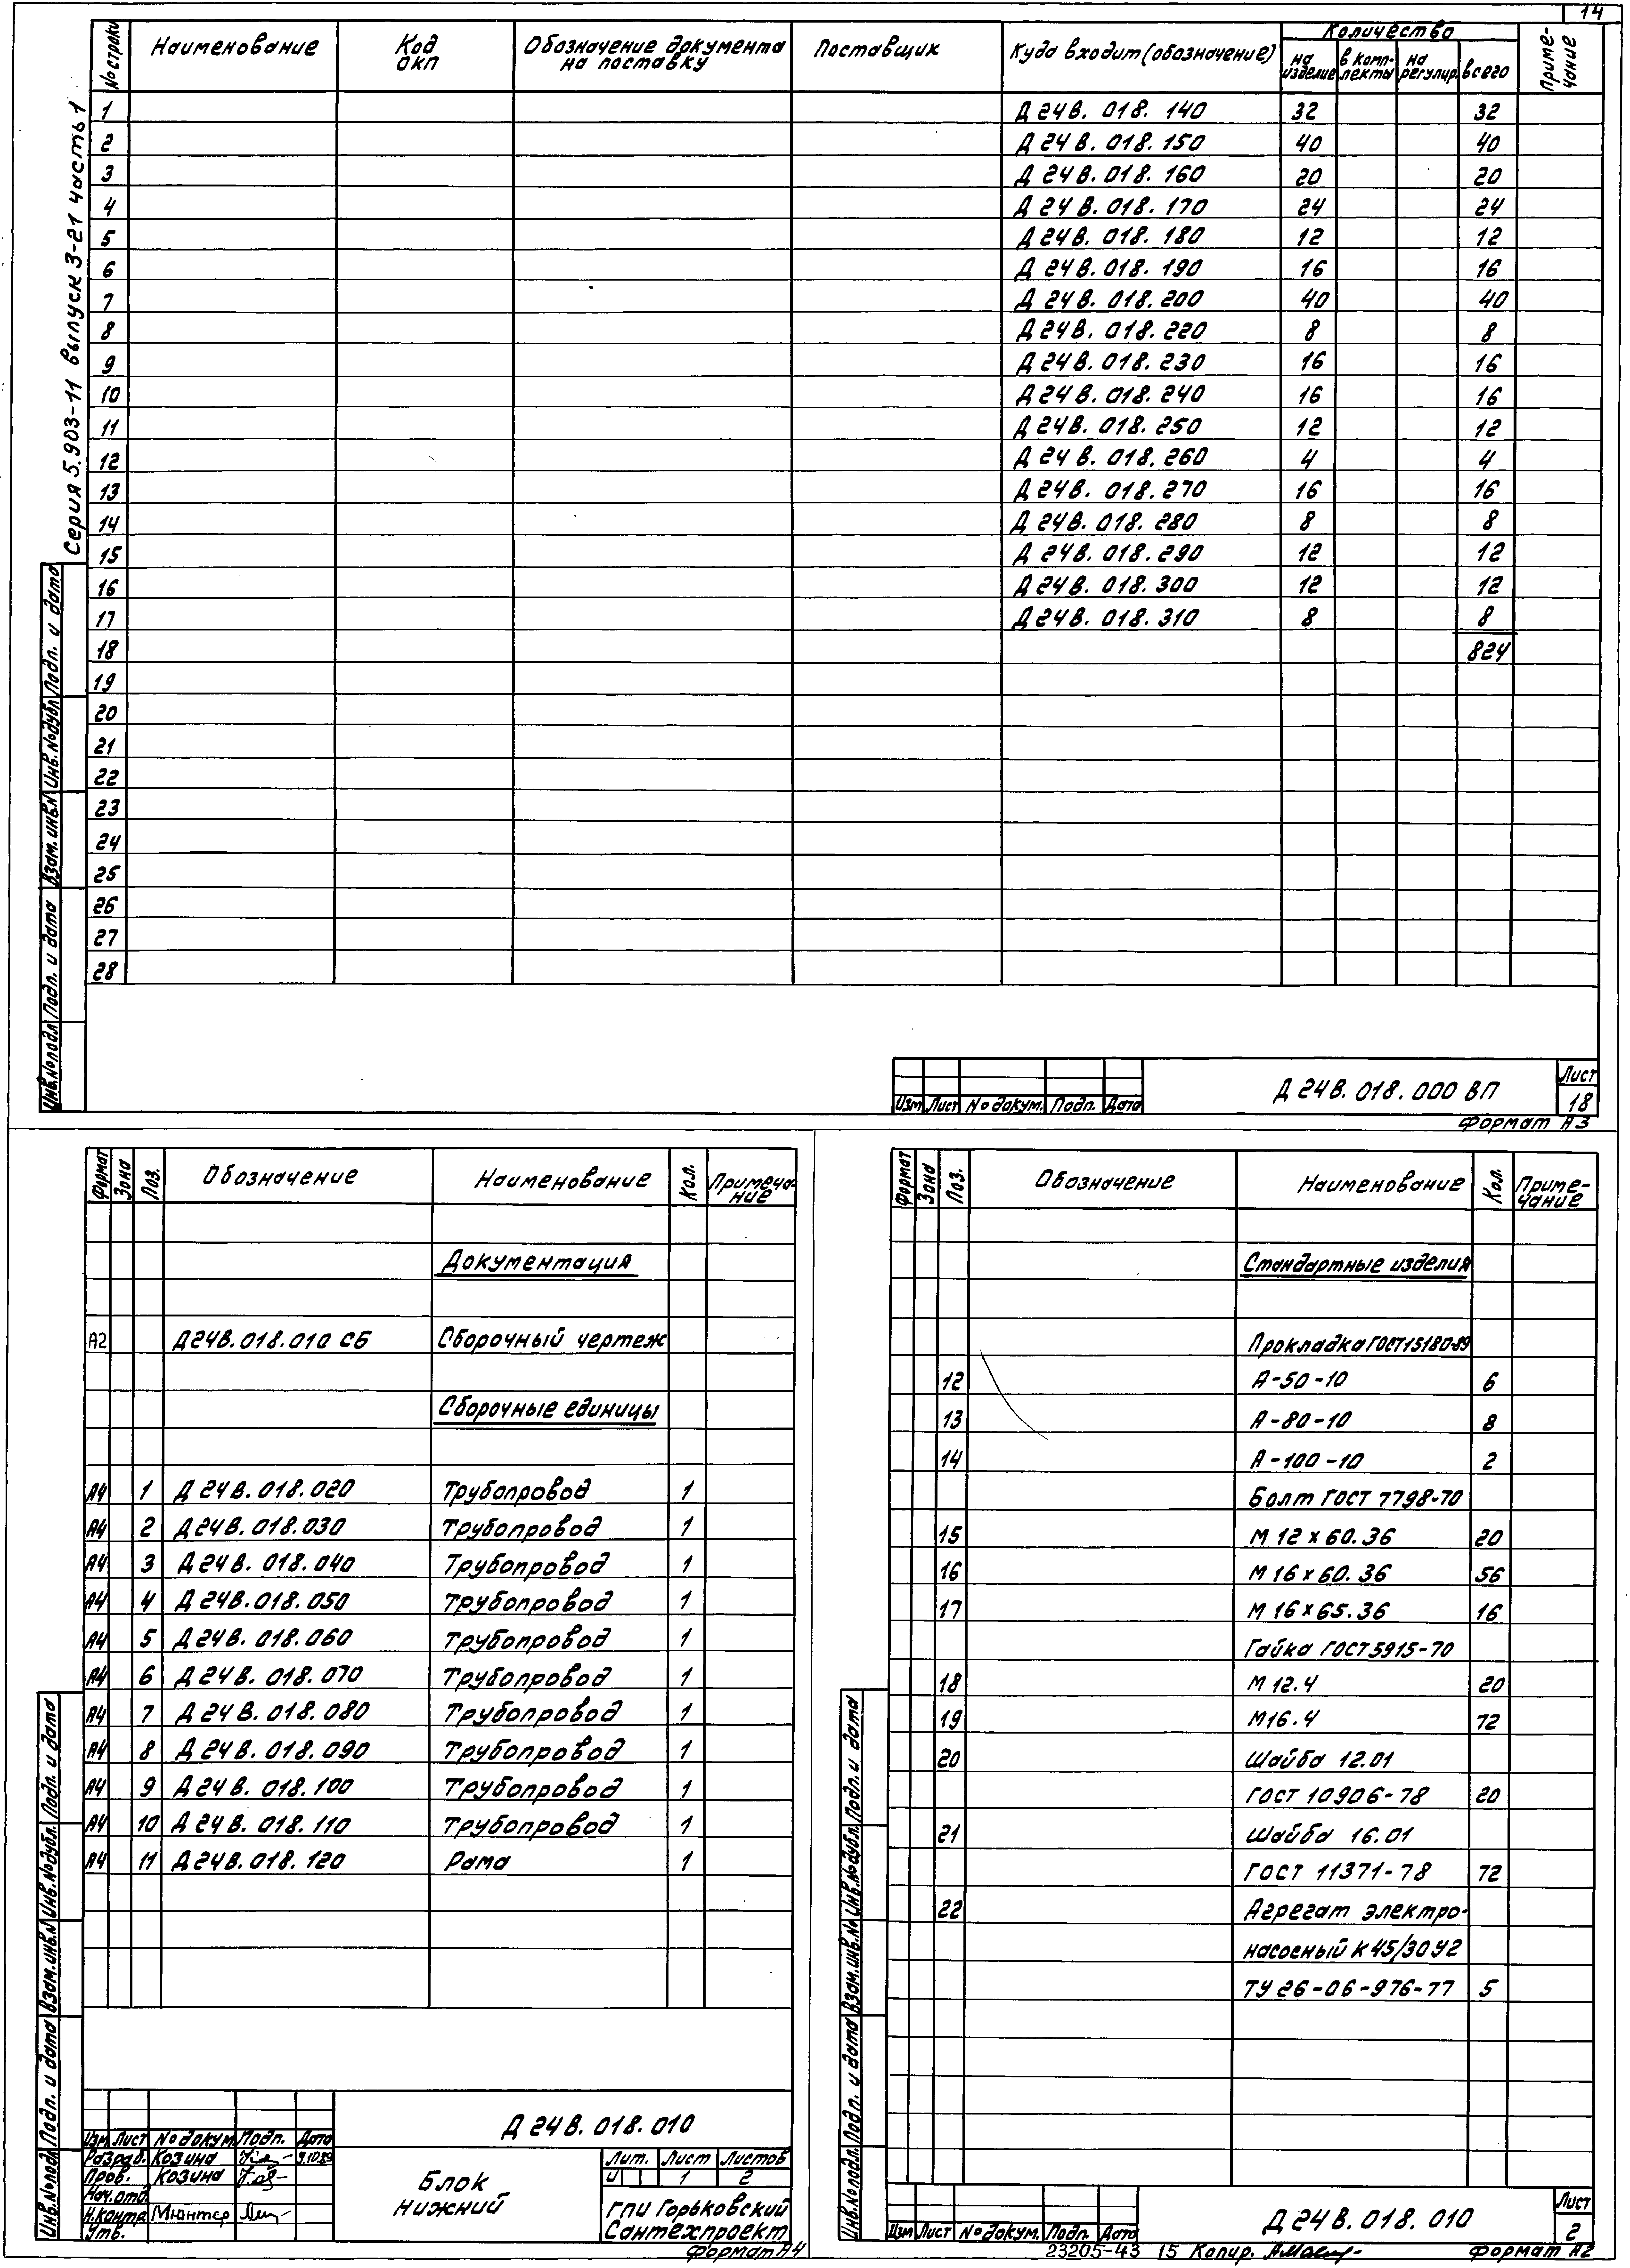 14
Серия 5.903-11 выпуск 3-21 часть 1
№ строки Наименование Код ОКП Обозначение документа на поставку Поставщик Куда входит (обозначение) Количество на изделие в комплекты на регулир. всего Примечание
1 Д 24В. 018. 140 32 32
2 Д 24В. 018. 150 40 40
3 Д 24В. 018. 160 20 20
4 Д 24В. 018. 170 24 24
5 Д 24В. 018. 180 12 12
6 Д 24В. 018. 190 16 16
7 Д 24В. 018. 200 40 40
8 Д 24В. 018. 220 8 8
9 Д 24В. 018. 230 16 16
10 Д 24В. 018. 240 16 16
11 Д 24В. 018. 250 12 12
12 Д 24В. 018. 260 4 4
13 Д 24В. 018. 270 16 16
14 Д 24В. 018. 280 8 8
15 Д 24В. 018. 290 12 12
16 Д 24В. 018. 300 12 12
17 Д 24В. 018. 310 8 8
18 824
19
20
21
22
23
24
25
26
27
28
Инв.№подл. Подп. и дата Взам. инв.№ Инв.№дубл. Подп. и дата
Изм Лист № докум. Подп. Дата
Д 24В. 018. 000 ВП
Лист
18
Формат А3
Формат Зона Поз. Обозначение Наименование Кол. Примечание
Документация
А2 Д24В.018.010 СБ Сборочный чертеж
Сборочные единицы
А4 1 Д 24В. 018. 020 Трубопровод 1
А4 2 Д 24В. 018. 030 Трубопровод 1
А4 3 Д 24В. 018. 040 Трубопровод 1
А4 4 Д 24В. 018. 050 Трубопровод 1
А4 5 Д 24В. 018. 060 Трубопровод 1
А4 6 Д 24В. 018. 070 Трубопровод 1
А4 7 Д 24В. 018. 080 Трубопровод 1
А4 8 Д 24В. 018. 090 Трубопровод 1
А4 9 Д 24В. 018. 100 Трубопровод 1
А4 10 Д 24В. 018. 110 Трубопровод 1
А4 11 Д 24В. 018. 120 Рама 1
Инв.№подл. Подп. и дата Взам.инв.№ Инв.№дубл. Подп. и дата
Изм Лист № докум. Подп. Дата
Разраб. Козина 9.10.89
Пров. Козина
Нач.отд.
Н.контр. Мюнтер
Утв.
Д 24В. 018. 010
Блок
нижний
Лит. Лист Листов
И 1 2
ГПИ Горьковский
Сантехпроект
Формат А4
Формат Зона Поз. Обозначение Наименование Кол. Примечание
Стандартные изделия
Прокладка ГОСТ 15180-89
12 А-50-10 6
13 А-80-10 8
14 А-100-10 2
Болт ГОСТ 7798-70
15 М 12 х 60. 36 20
16 М 16 х 60. 36 56
17 М 16 х 65. 36 16
Гайка ГОСТ 5915-70
18 М 12. 4 20
19 М16. 4 72
20 Шайба 12.01
ГОСТ 10906-78 20
21 Шайба 16.01
ГОСТ 11371-78 72
22 Агрегат электро-
насосный К 45/30 У2
ТУ 26-06-976-77 5
Инв.№подл. Подп. и дата Взам.инв.№ Инв.№дубл. Подп. и дата
Изм Лист № докум. Подп. Дата
Д 24В. 018. 010
Лист
2
23205-43 15 Копир. Формат А2